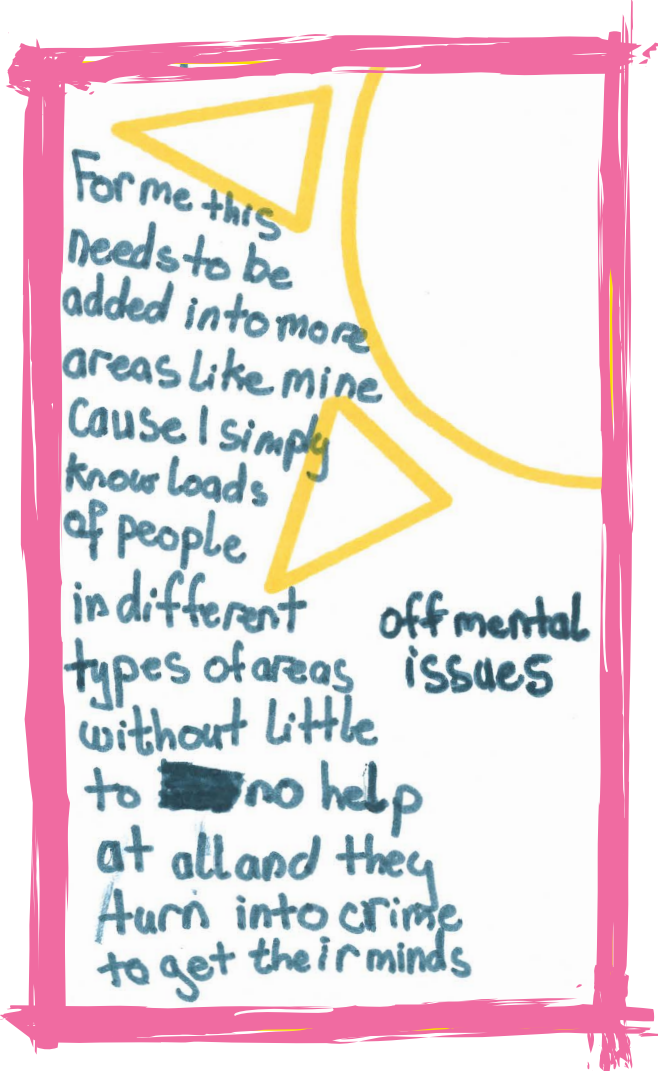 For me this
needs to be
added into more
areas like mine
cause I simply
know loads
of people
in different
types of areas
without little
to no help
at all and they
turn into crime
to get their minds
off mental
issues